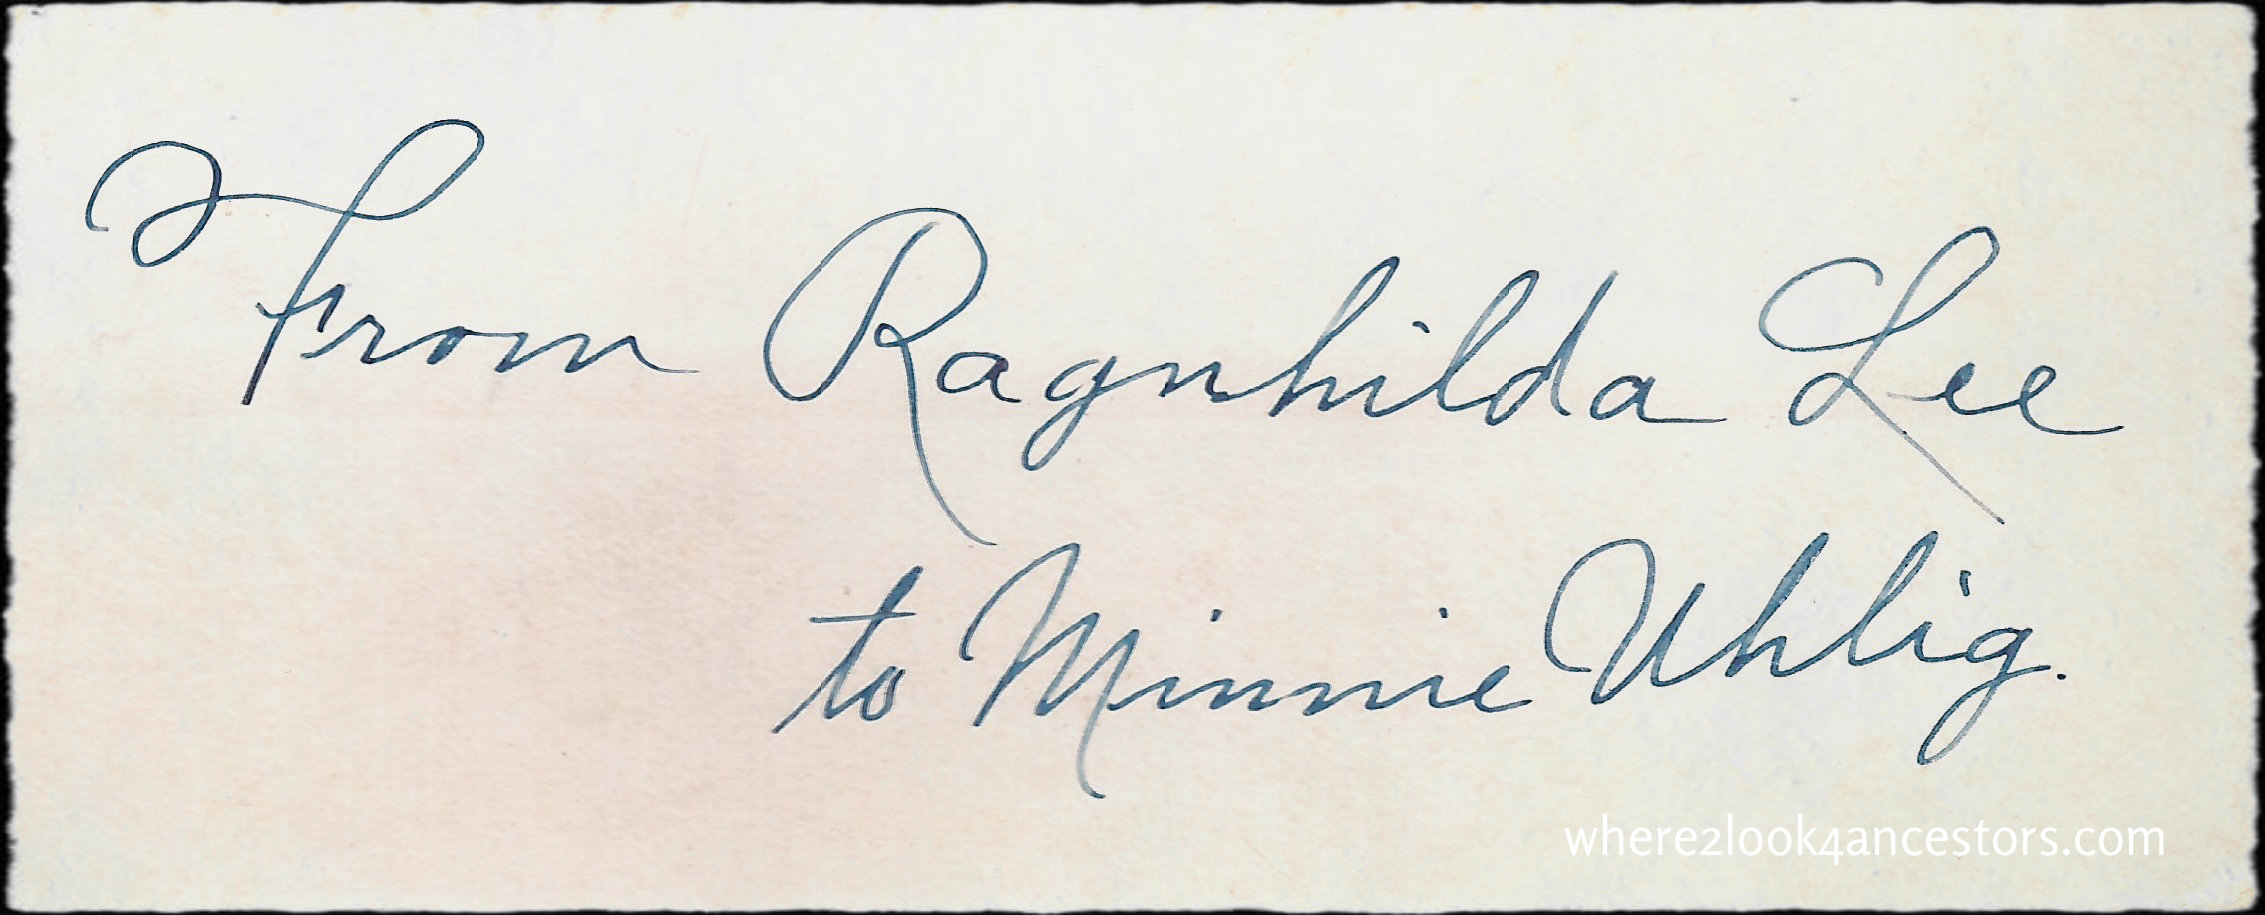 From Ragnhilda Lee
to Minnie Uhlig.
where2look4ancestors.com